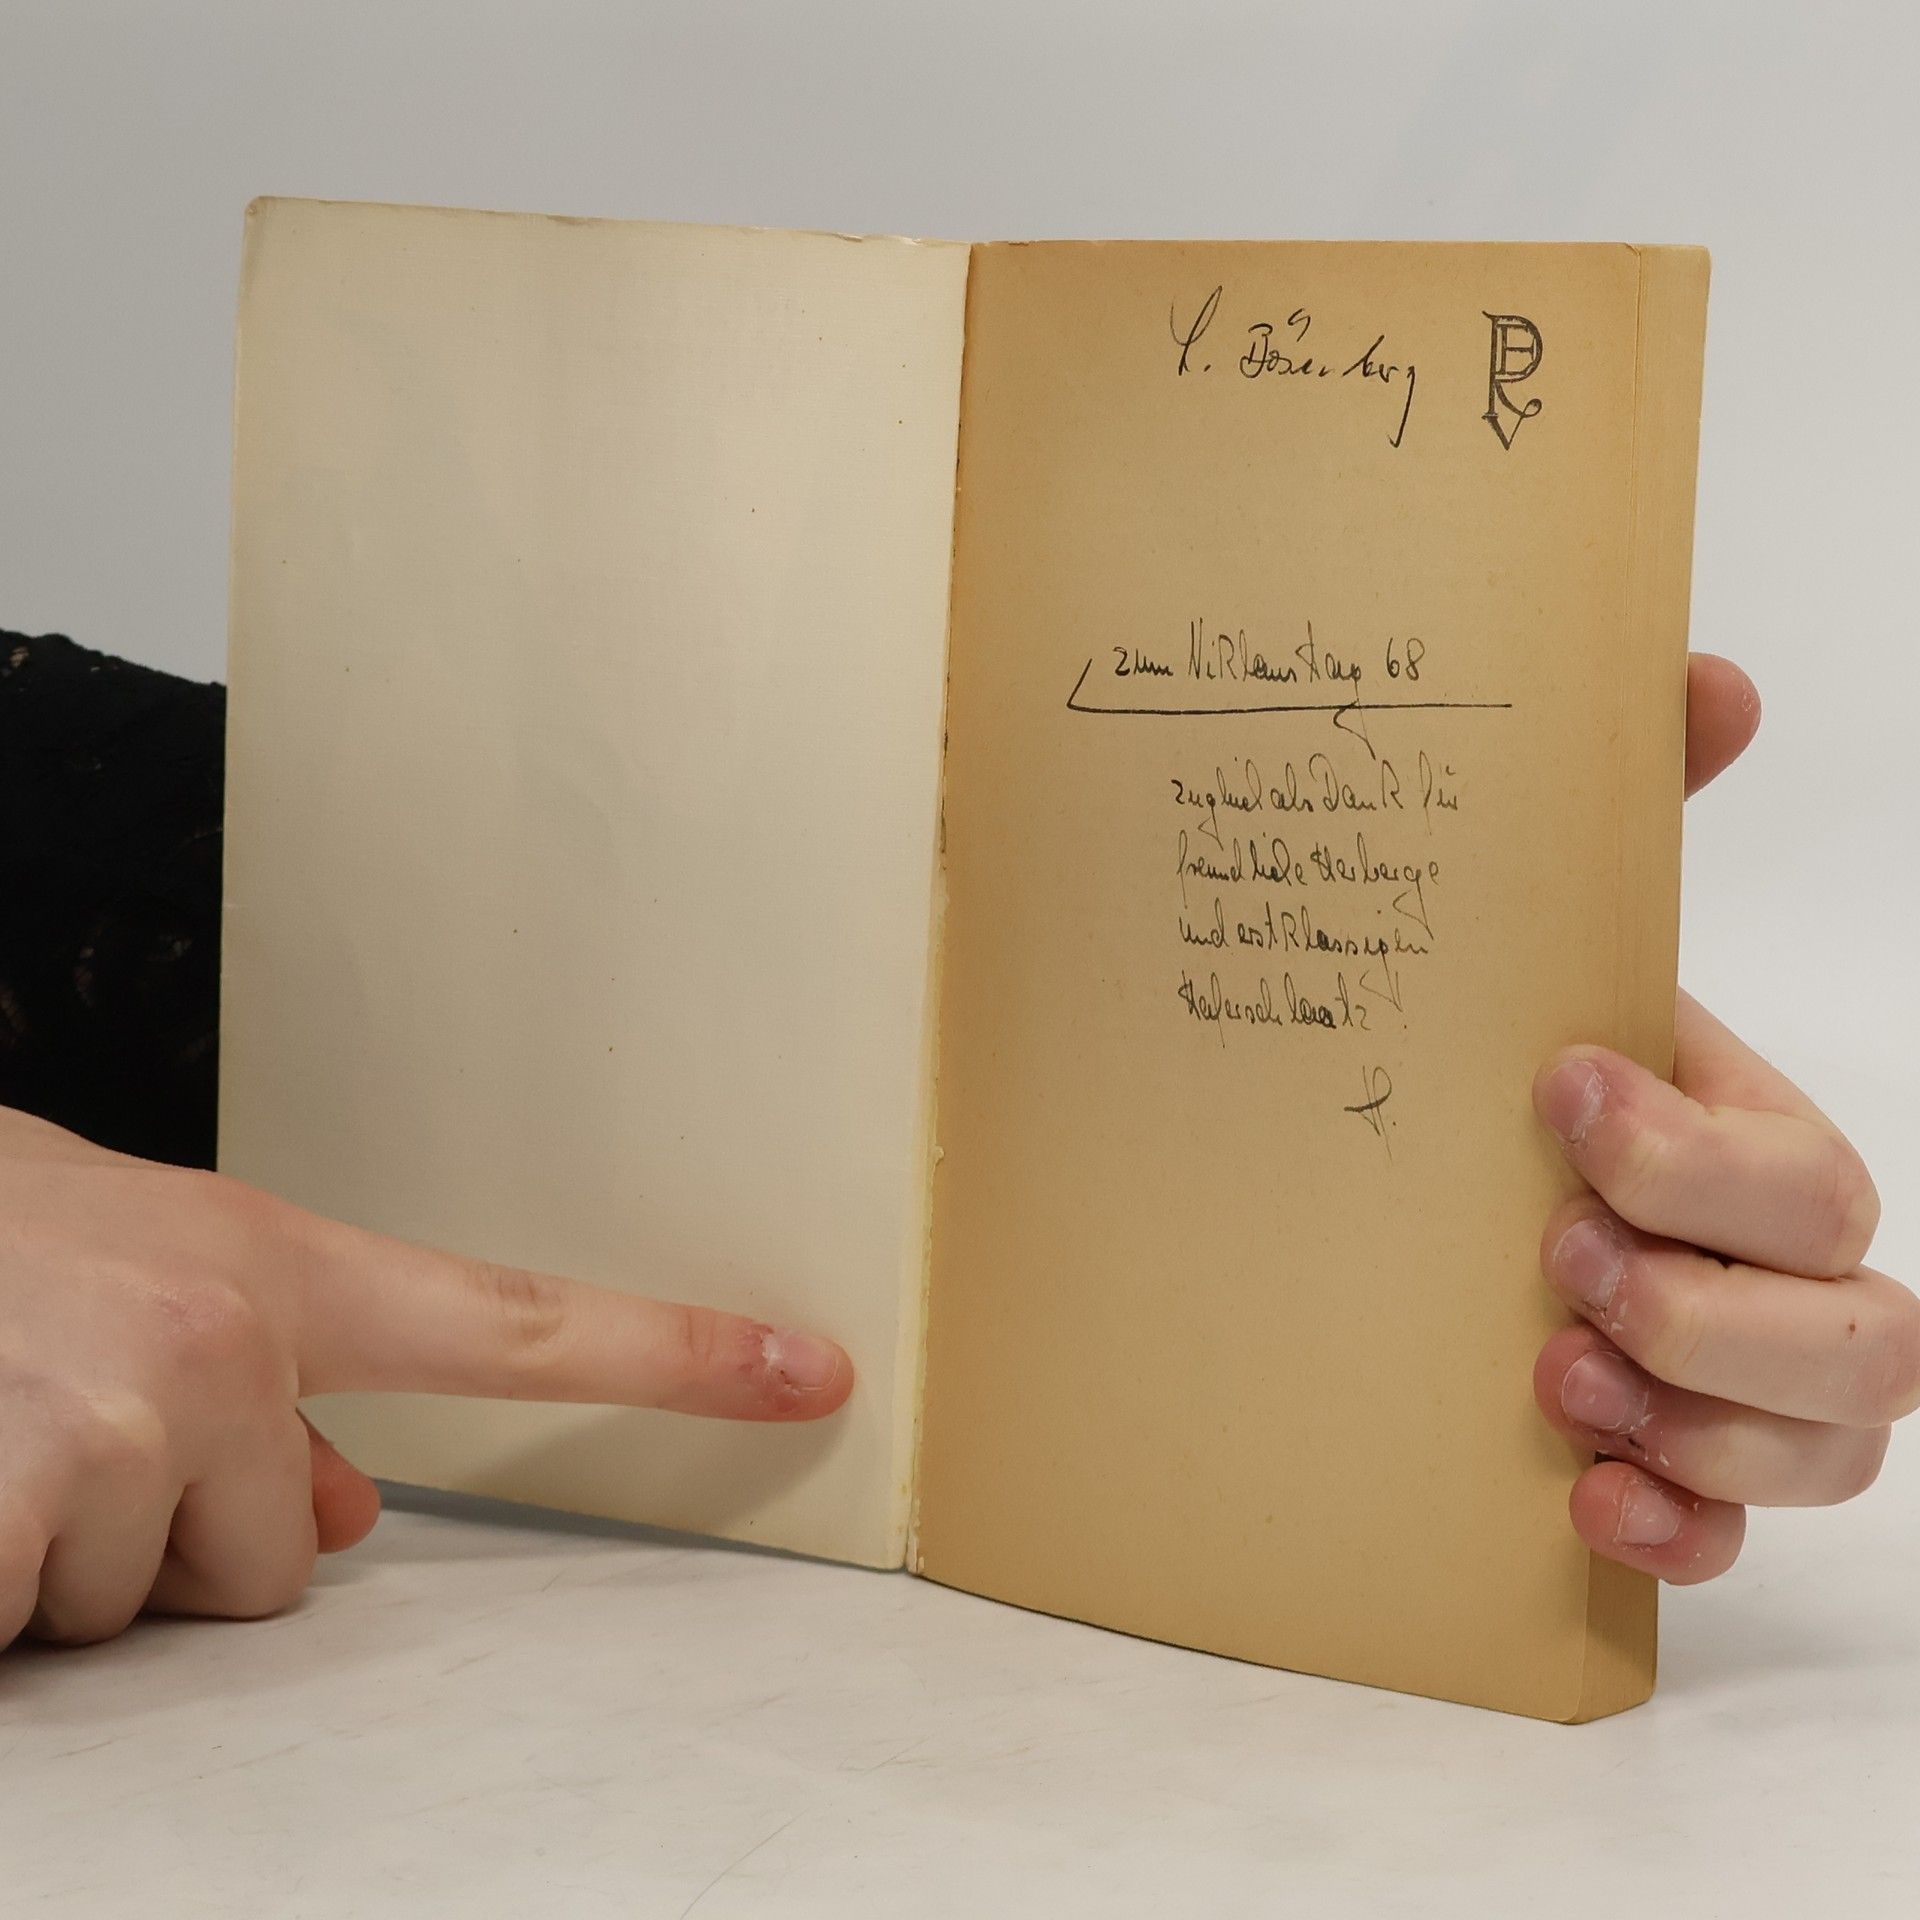 L. Bösenberg
zum Niklaustag 68
zugleich als Dank für
freundliche Herberge
und erstklassigen
H.